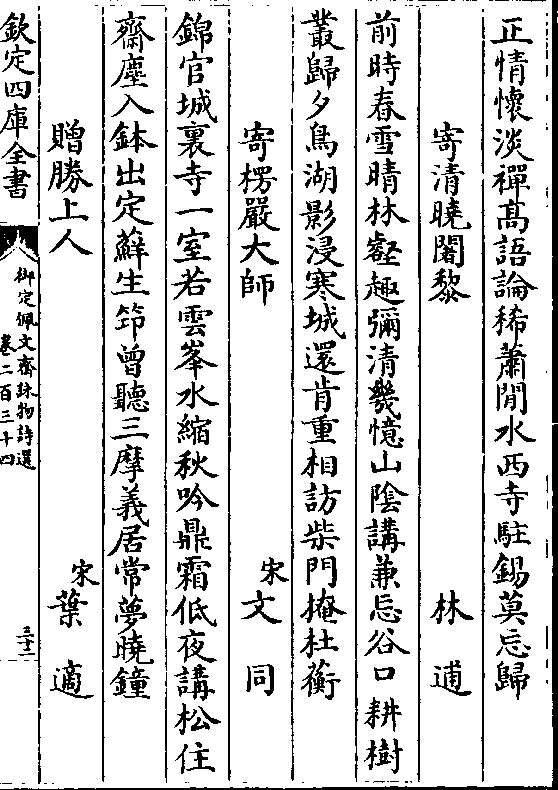 正情懷淡禪髙語論稀蕭閒水西寺駐錫莫忘歸
寄清曉闍黎　林逋
前時春雪晴林壑趣彌清幾憶山陰講兼忘谷口耕樹
叢歸夕鳥湖影浸寒城還肯重相訪柴門掩杜蘅
寄楞嚴大師　宋文同
錦官城裏寺一室若雲峯水縮秋吟鼎霜低夜講松住
齋塵入鉢出定蘚生笻曾聽三摩義居常夢曉鐘
贈勝上人　宋葉適
欽定四庫全書
御定佩文齋詠物詩選
卷二百三十四